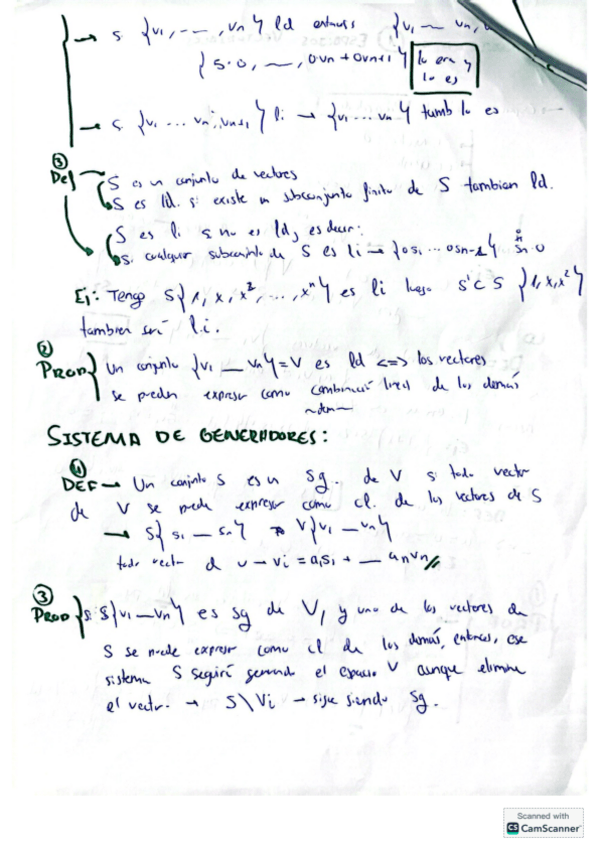 → si {v1, ---, vn} ld entonces {v1 — vn,
{s·0, —, 0vn + 0vn+1} lo era y
lo es
→ si {v1 ... vn, vn+1} li → {v1 ... vn} tamb lo es
③
Def
S es un conjunto de vectores
S es ld. si existe un subconjunto finito de S tambien ld.
S es li si no es ld, es decir:
si cualquier subconjunto de S es li →
Ej: Tengo S{1, x, x², ..., xⁿ} es li luego S'⊂S {1, x, x²}
tambien será l.i.
②
PROP} Un conjunto {v1 — vn} = V es ld <=> los vectores
se pueden expresar como combinació lineal de los demás
~dem~
SISTEMA DE GENERADORES:
④
DEF → Un conjunto S es un Sg. de V si todo vector
de V se puede expresar como cl. de los vectores de S
→ S{s1 — sn} → V{v1 — vn}
todo vector de v → vi = a1s1 + — anvn//
③
PROP} si S{v1 — vn} es sg de V, y uno de los vectores de
S se puede expresar como cl de los demás, entonces, ese
sistema S seguirá generando el espacio V aunque elimine
el vector. → S\Vi → sigue siendo Sg.
Scanned with
CS CamScanner